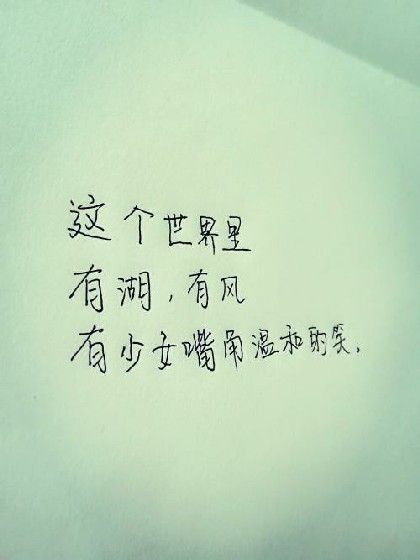 这个世界里
有湖，有风
有少女嘴角温和的笑．